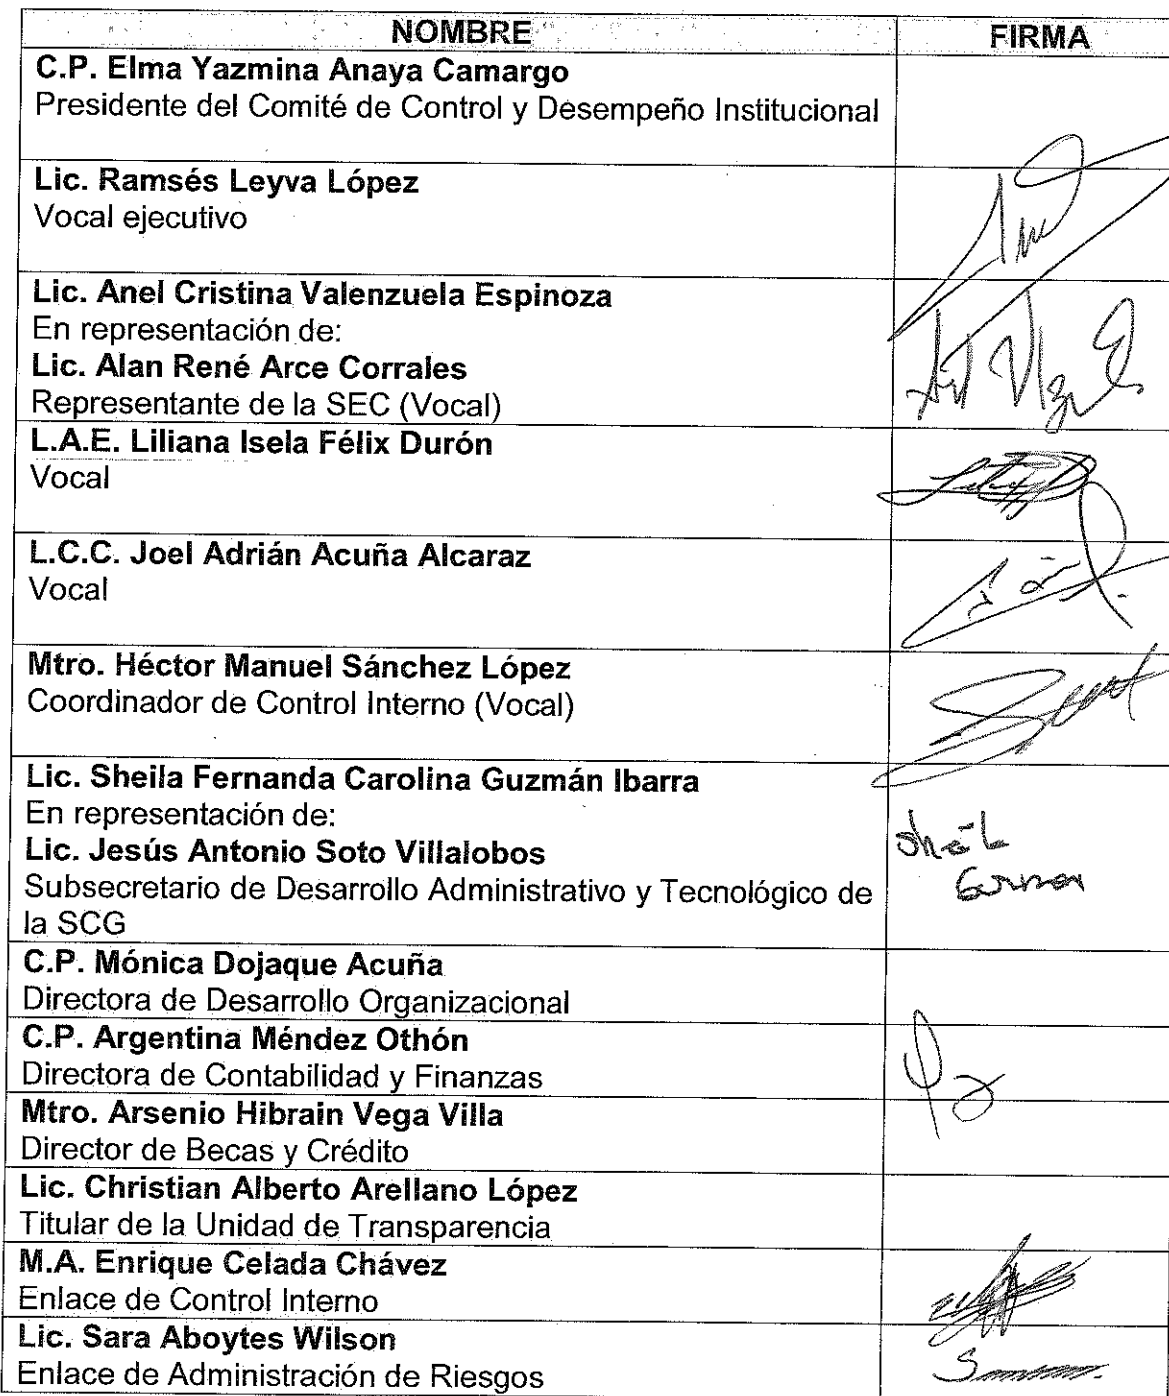 NOMBRE FIRMA
C.P. Elma Yazmina Anaya Camargo
Presidente del Comité de Control y Desempeño Institucional
Lic. Ramsés Leyva López
Vocal ejecutivo
Lic. Anel Cristina Valenzuela Espinoza
En representación de:
Lic. Alan René Arce Corrales
Representante de la SEC (Vocal)
L.A.E. Liliana Isela Félix Durón
Vocal
L.C.C. Joel Adrián Acuña Alcaraz
Vocal
Mtro. Héctor Manuel Sánchez López
Coordinador de Control Interno (Vocal)
Lic. Sheila Fernanda Carolina Guzmán Ibarra
En representación de:
Lic. Jesús Antonio Soto Villalobos
Subsecretario de Desarrollo Administrativo y Tecnológico de
la SCG
C.P. Mónica Dojaque Acuña
Directora de Desarrollo Organizacional
C.P. Argentina Méndez Othón
Directora de Contabilidad y Finanzas
Mtro. Arsenio Hibrain Vega Villa
Director de Becas y Crédito
Lic. Christian Alberto Arellano López
Titular de la Unidad de Transparencia
M.A. Enrique Celada Chávez
Enlace de Control Interno
Lic. Sara Aboytes Wilson
Enlace de Administración de Riesgos